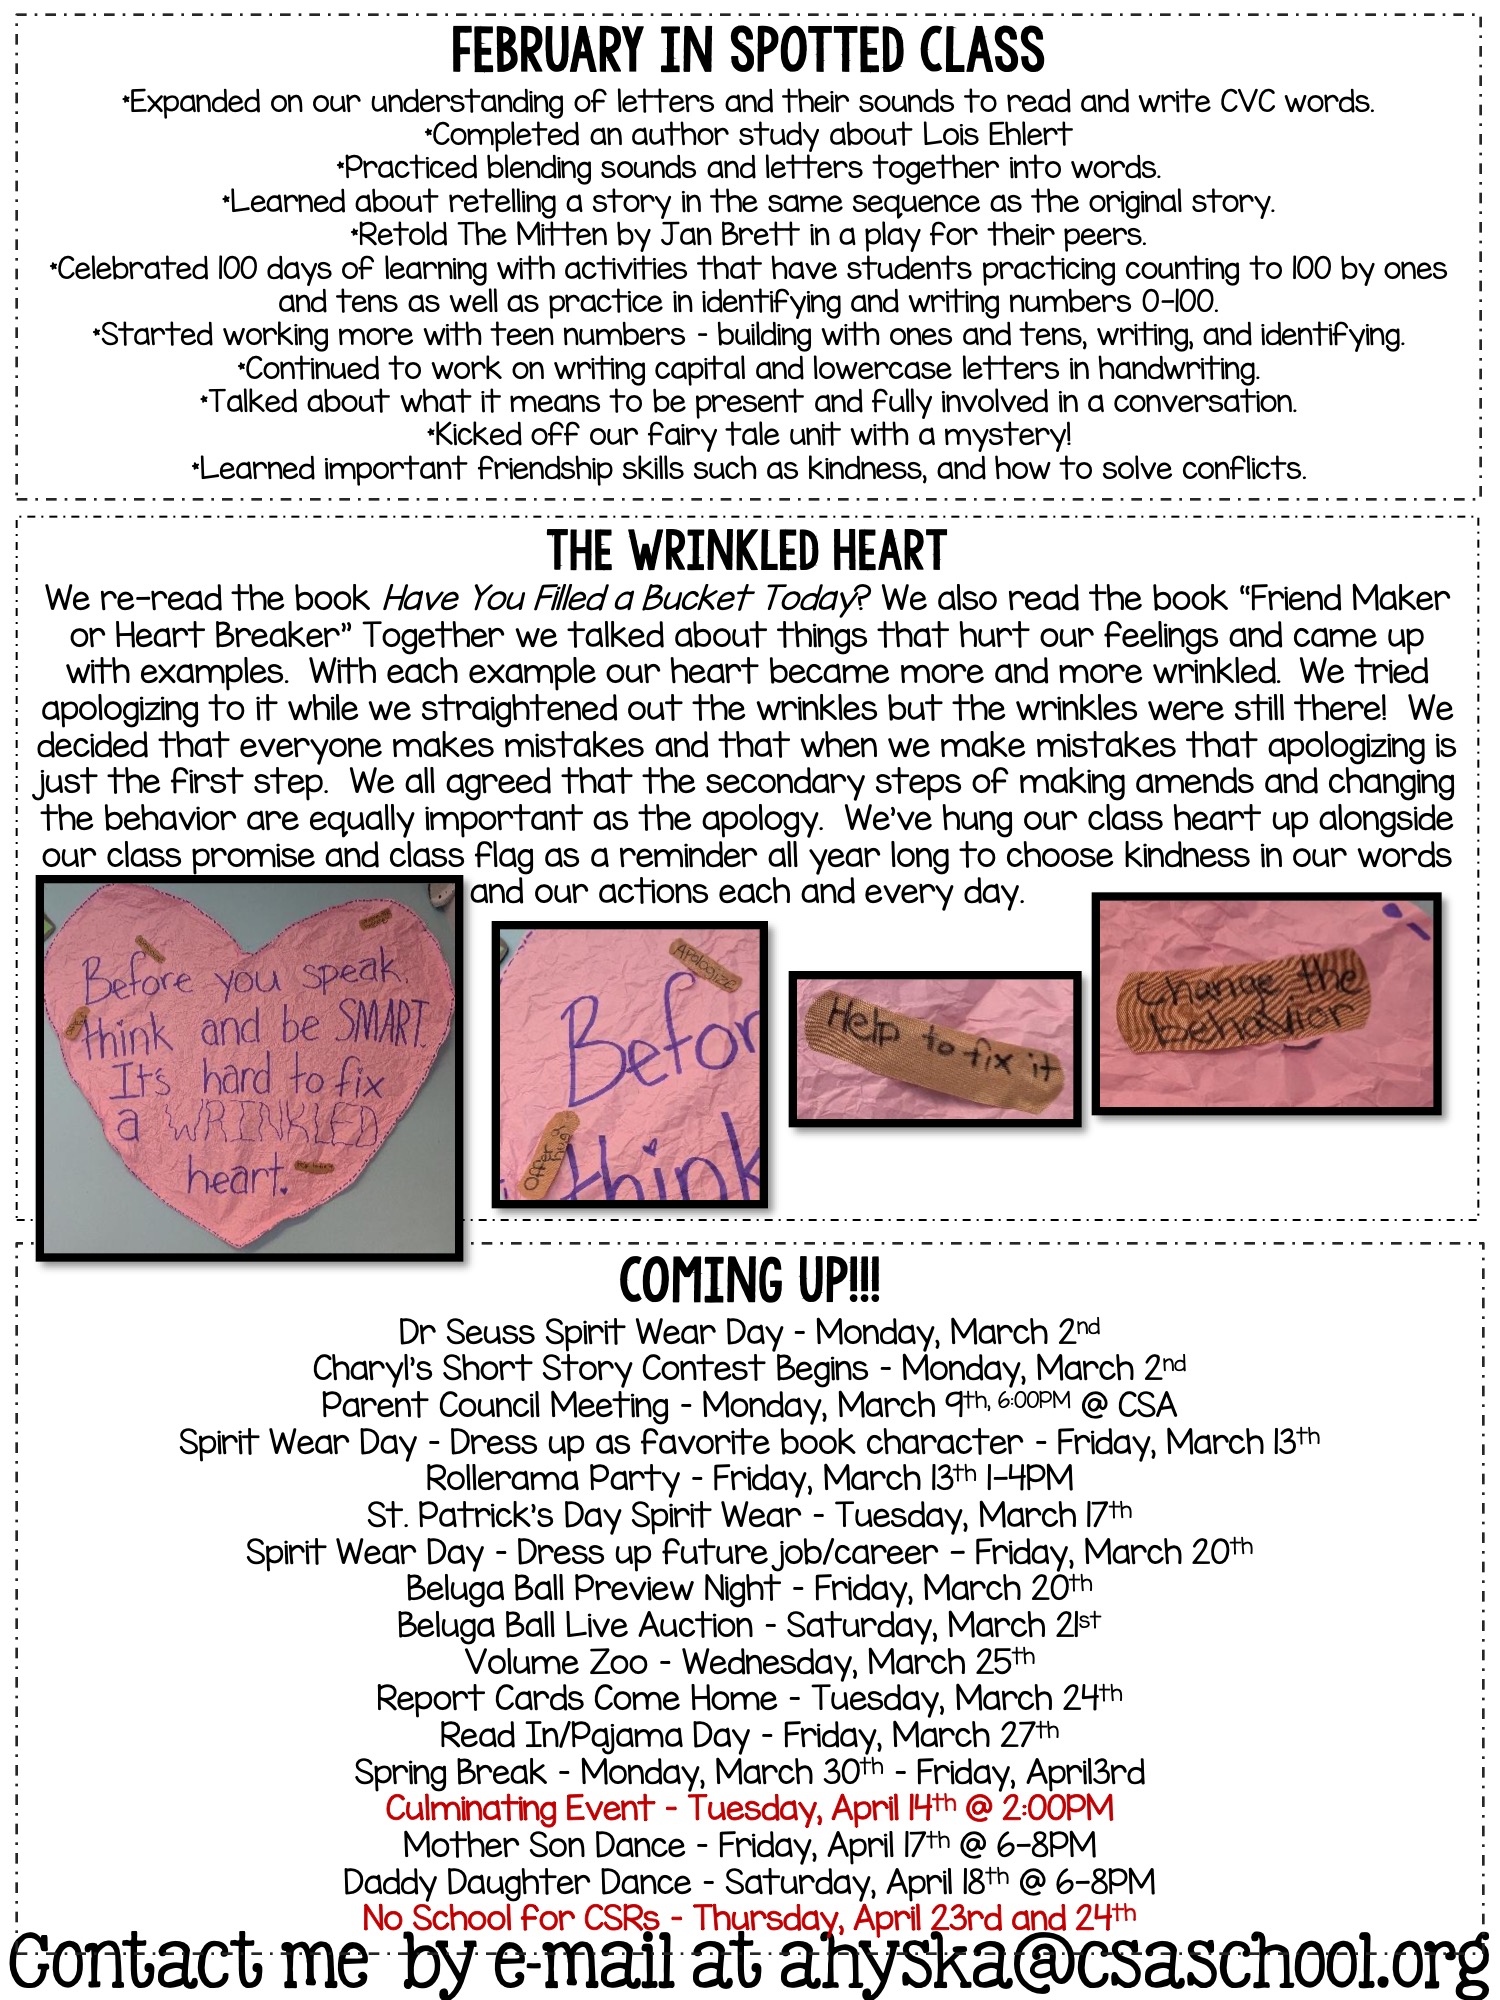 FEBRUARY IN SPOTTED CLASS
*Expanded on our understanding of letters and their sounds to read and write CVC words.
*Completed an author study about Lois Ehlert
*Practiced blending sounds and letters together into words.
*Learned about retelling a story in the same sequence as the original story.
*Retold The Mitten by Jan Brett in a play for their peers.
*Celebrated 100 days of learning with activities that have students practicing counting to 100 by ones
and tens as well as practice in identifying and writing numbers 0-100.
*Started working more with teen numbers - building with ones and tens, writing, and identifying.
*Continued to work on writing capital and lowercase letters in handwriting.
*Talked about what it means to be present and fully involved in a conversation.
*Kicked off our fairy tale unit with a mystery!
*Learned important friendship skills such as kindness, and how to solve conflicts.
THE WRINKLED HEART
We re-read the book Have You Filled a Bucket Today? We also read the book “Friend Maker
or Heart Breaker” Together we talked about things that hurt our feelings and came up
with examples. With each example our heart became more and more wrinkled. We tried
apologizing to it while we straightened out the wrinkles but the wrinkles were still there! We
decided that everyone makes mistakes and that when we make mistakes that apologizing is
just the first step. We all agreed that the secondary steps of making amends and changing
the behavior are equally important as the apology. We’ve hung our class heart up alongside
our class promise and class flag as a reminder all year long to choose kindness in our words
and our actions each and every day.
Before you speak.
think and be SMART.
It's hard to fix
a WRINKLED
heart.
Apologize
Befor
Offer a hug
think
Help to fix it
Change the
behavior
COMING UP!!!
Dr Seuss Spirit Wear Day - Monday, March 2nd
Charyl’s Short Story Contest Begins - Monday, March 2nd
Parent Council Meeting - Monday, March 9th, 6:00PM @ CSA
Spirit Wear Day - Dress up as favorite book character - Friday, March 13th
Rollerama Party - Friday, March 13th 1-4PM
St. Patrick’s Day Spirit Wear - Tuesday, March 17th
Spirit Wear Day - Dress up future job/career – Friday, March 20th
Beluga Ball Preview Night - Friday, March 20th
Beluga Ball Live Auction - Saturday, March 21st
Volume Zoo - Wednesday, March 25th
Report Cards Come Home - Tuesday, March 24th
Read In/Pajama Day - Friday, March 27th
Spring Break - Monday, March 30th - Friday, April3rd
Culminating Event - Tuesday, April 14th @ 2:00PM
Mother Son Dance - Friday, April 17th @ 6-8PM
Daddy Daughter Dance - Saturday, April 18th @ 6-8PM
No School for CSRs - Thursday, April 23rd and 24th
Contact me by e-mail at ahyska@csaschool.org